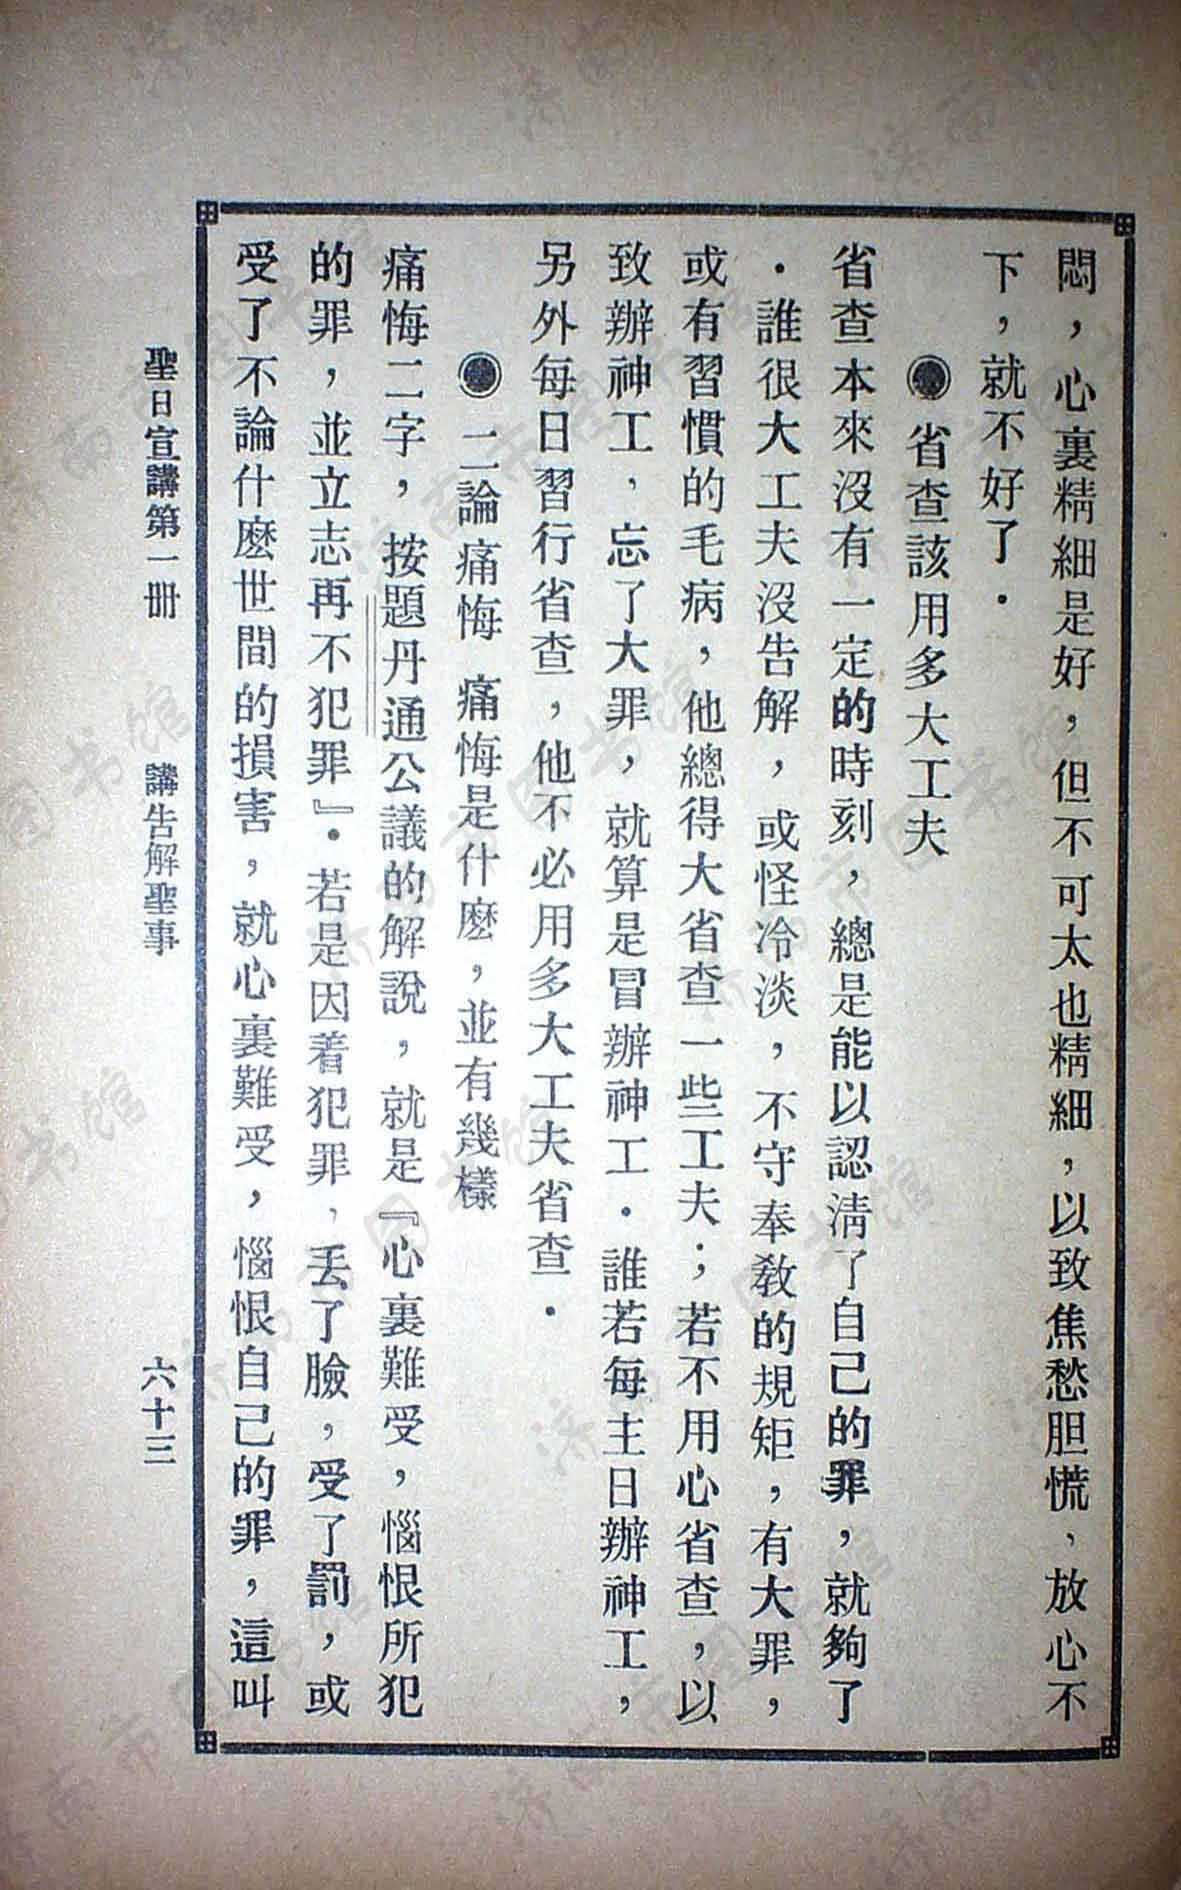 悶，心裏精細是好，但不可太也精細，以致焦愁胆慌，放心不
下，就不好了．
◉省查該用多大工夫
省查本來沒有一定的時刻，總是能以認淸了自己的罪，就夠了
．誰很大工夫沒告解，或怪冷淡，不守奉敎的規矩，有大罪，
或有習慣的毛病，他總得大省查一些工夫；若不用心省查，以
致辦神工，忘了大罪，就算是冒辦神工．誰若每主日辦神工，
另外每日習行省查，他不必用多大工夫省查．
◉二論痛悔 痛悔是什麽，並有幾樣
痛悔二字，按題丹通公議的解說，就是『心裏難受，惱恨所犯
的罪，並立志再不犯罪』．若是因着犯罪，丢了臉，受了罰，或
受了不論什麽世間的損害，就心裏難受，惱恨自己的罪，這叫
聖日宣講第一册 講告解聖事 六十三
济南市图书馆